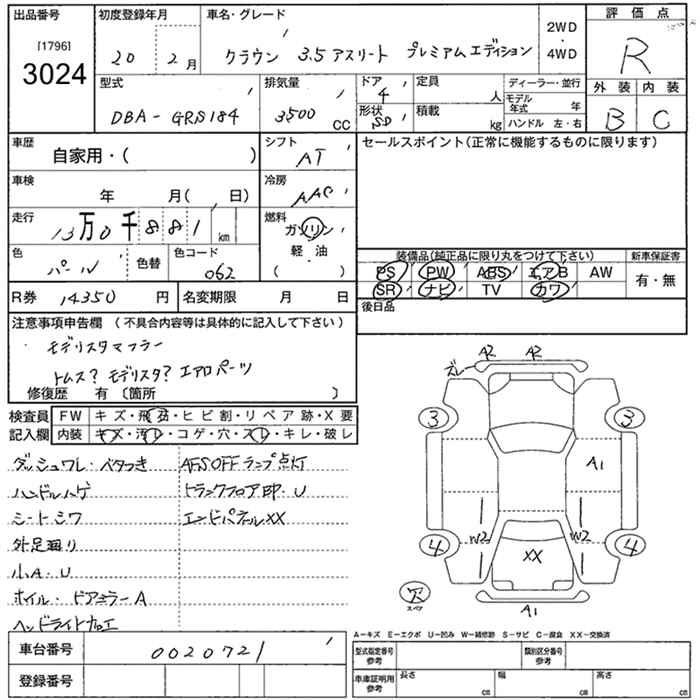 出品番号 初度登録年月 車名・グレード 評価点
[1796] 2WD
3024 20 2月 クラウン 3.5アスリート プレミアムエディション ・4WD R
型式 排気量 ドア 4 定員 人 ディーラー・並行 外装 内装
DBA-GRS184 3500 CC 形状 SD 積載 kg モデル年式 年 B C
ハンドル 左・右
車歴 シフト セールスポイント(正常に機能するものに限ります)
自家用・( ) AT
車検 冷房
年 月( 日) AAC
走行 燃料
13万0千881km ガソリン
軽油
( )
色 色替 色コード 装備品(純正品に限り丸をつけて下さい) 新車保証書
パール 062 PS PW ABS エアB AW 有・無
R券 14350円 名変期限 月 日 SR ナビ TV カワ
後日品
注意事項申告欄 (不具合内容等は具体的に記入して下さい)
・モデリスタマフラー
トムス?モデリスタ?エアロパーツ
修復歴 有〔箇所 〕
検査員 FW キズ・飛石・ヒビ割・リペア跡・X要
記入欄 内装 キズ・汚レ・コゲ・穴・スレ・キレ・破レ
ダッシュワレ・ベタつき AFS OFFランプ点灯
ハンドルハゲ トランクフロア凹・U
シートシワ エンドパネルXX
外足廻り
小A・U
ホイル・ドアミラーA
ヘッドライト加工
ズレ A2 A2
3 3
A1
W2 W2
4 4
XX
穴
スペア
A1
A-キズ E-エクボ U-凹み W-補修跡 S-サビ C-腐食 XX-交換済
車台番号 0020721 型式指定番号 参考 類別区分番号 参考
登録番号 車庫証明用 参考 長さ cm 幅 cm 高さ cm